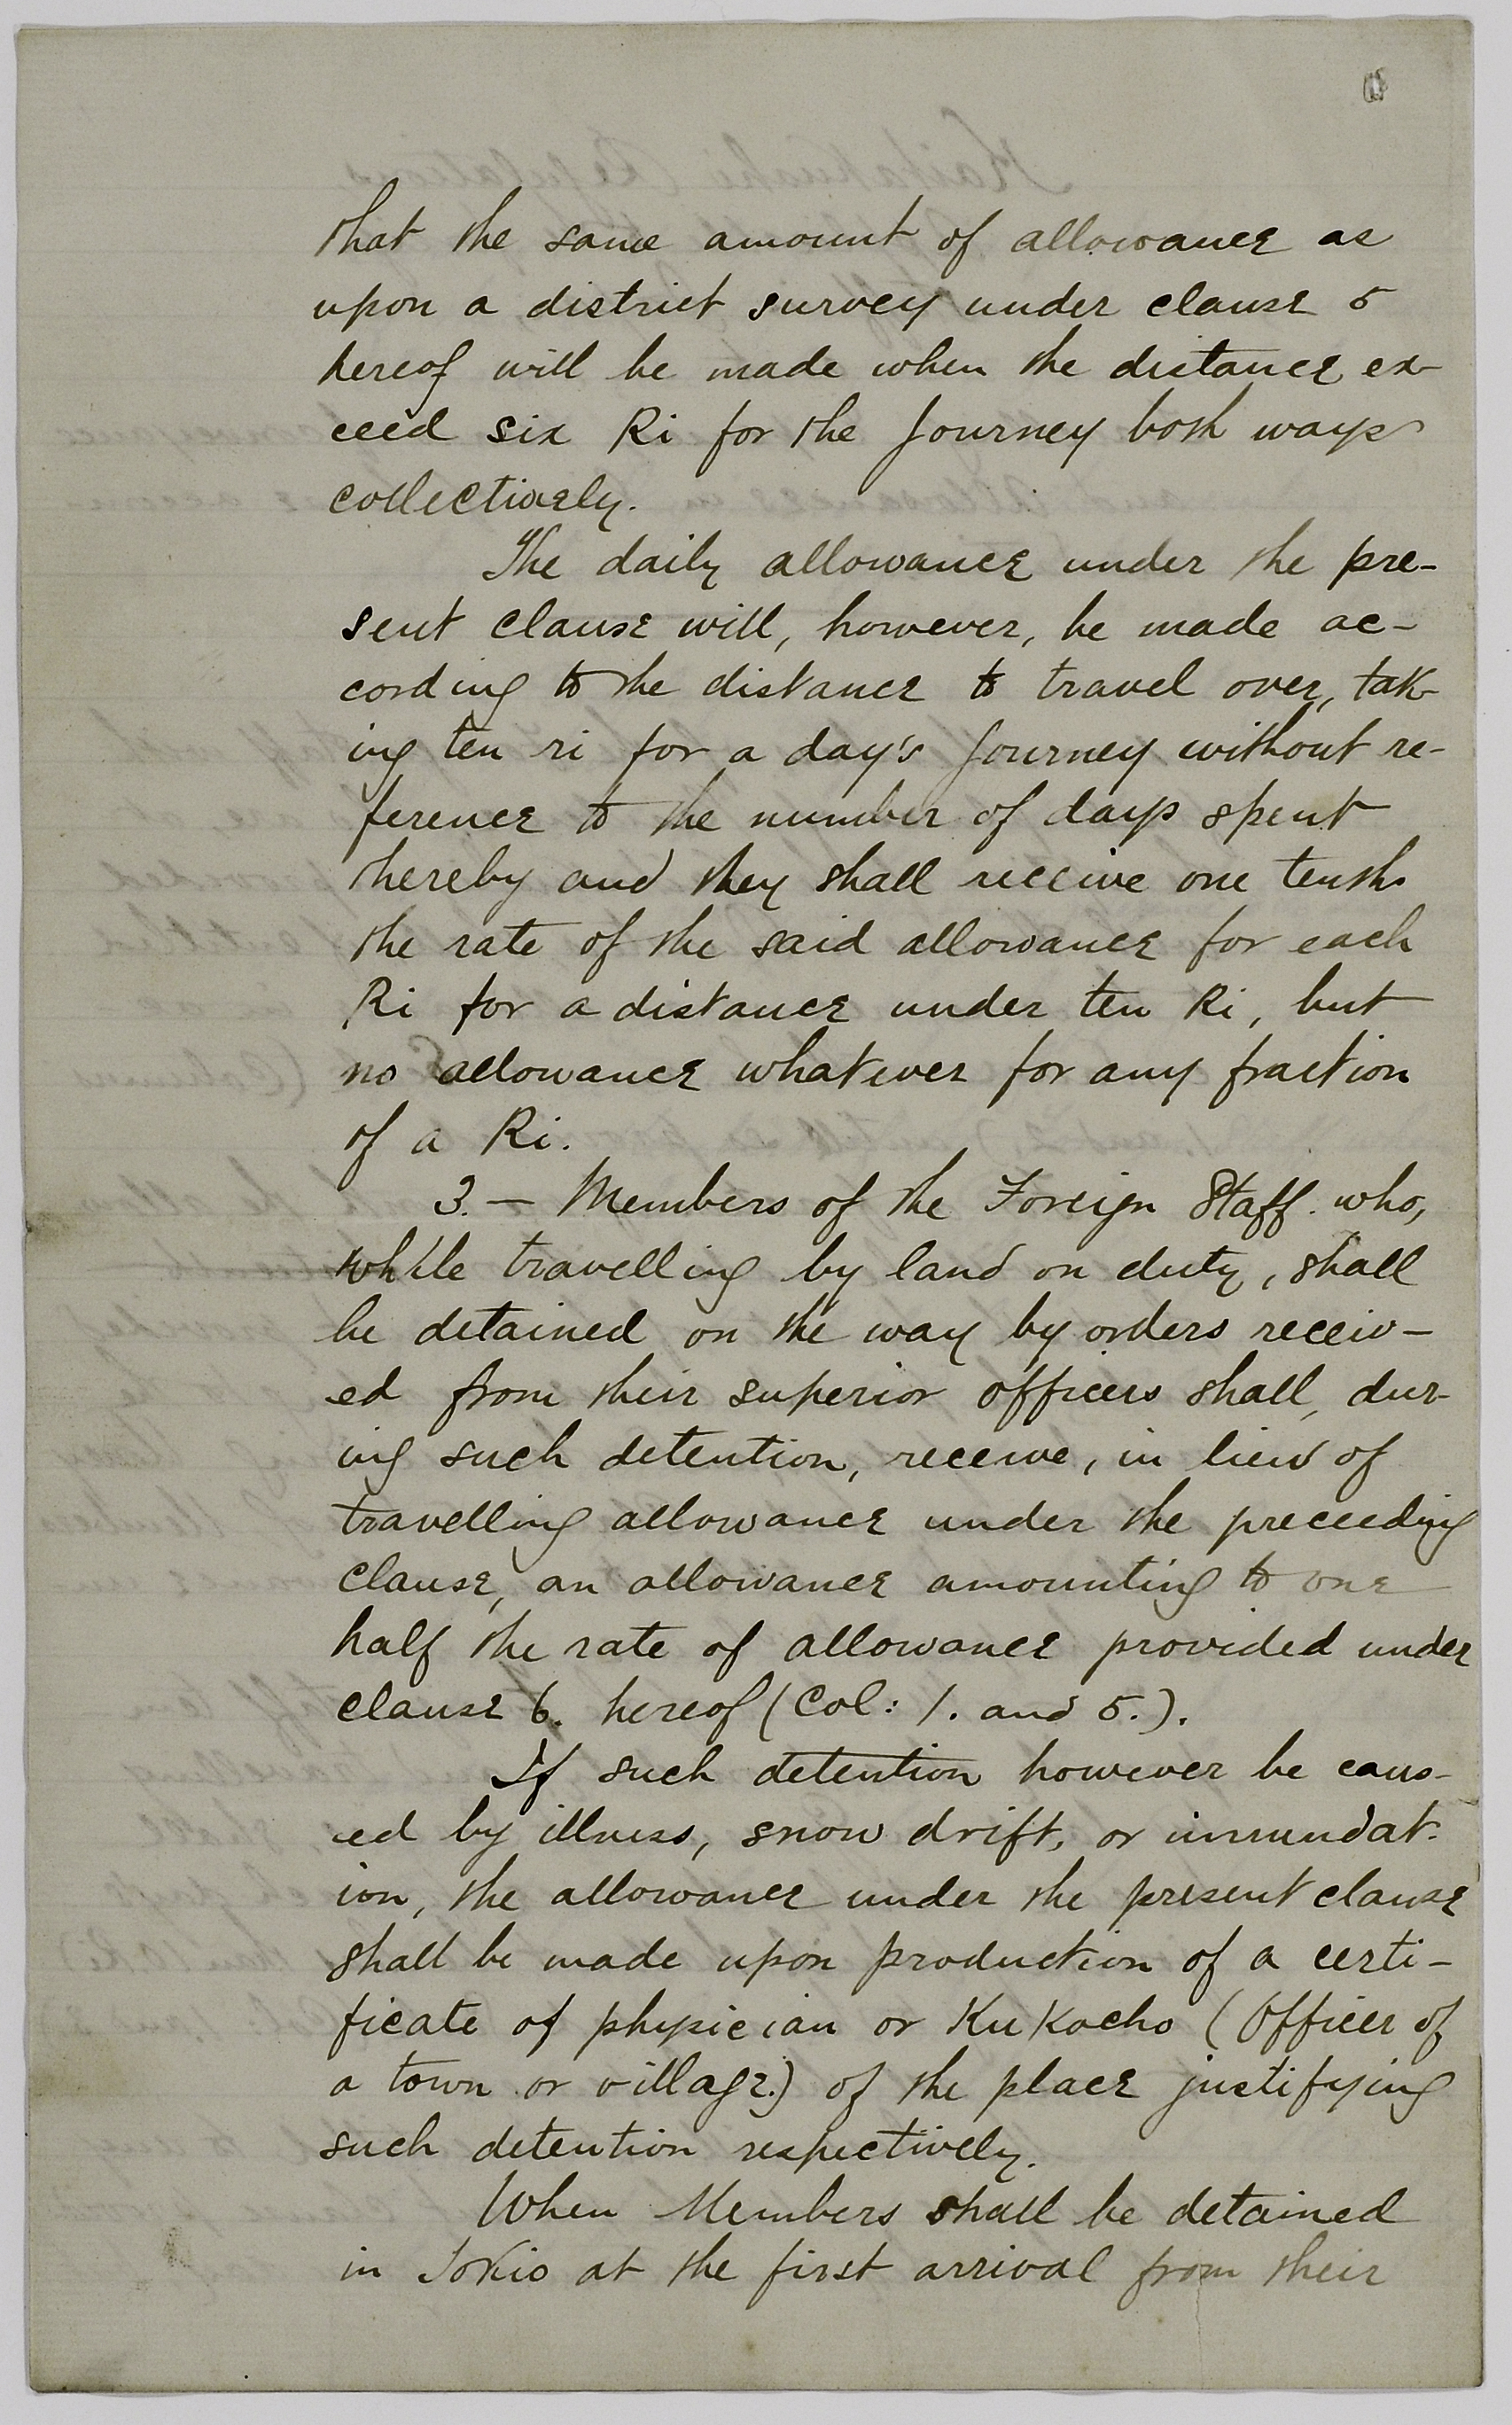 that the same amount of allowance as
upon a district survey under clause 5
hereof will be made when the distance ex-
ceed six Ri for the Journey both ways
collectively.
The daily allowance under the pre-
sent clause will, however, be made ac-
cording to the distance to travel over, tak-
ing ten ri for a day's Journey without re-
ference to the number of days spent
thereby and they shall receive one tenth
the rate of the said allowance for each
Ri for a distance under ten Ri, but
no allowance whatever for any fraction
of a Ri.
3. — Members of the Foreign Staff. who,
while travelling by land on duty, shall
be detained on the way by orders receiv-
ed from their superior officers shall, dur-
ing such detention, receive, in lieu of
travelling allowance under the preceeding
clause, an allowance amounting to one
half the rate of allowance provided under
clause 6. hereof (Col: 1. and 5.).
If such detention however be caus-
ed by illness, snow drift, or innundat-
ion, the allowance under the present clause
shall be made upon production of a certi-
ficate of physician or Ku Kocho (Officer of
a town or village.) of the place justifying
such detention respectively.
When Members shall be detained
in Tokio at the first arrival from their